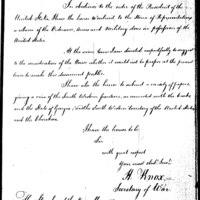 In obedience to the order of the President of the
United States, I have the honor to submit to the House of Representatives
a return of the Ordnance, Arms and Military Stores in possession of the
United States.
At the same time I am directed respectfully to suggest
to the consideration of the House whether it would not be proper at the present
time to make this document public.
I have also the honor to submit a variety of papers
giving a view of the South Western frontiers, as connected with the Creeks
and the State of Georgia, with the South Western territory of the United States and
the Cherokees.
I have the honor to be
Sir
with great respect
Your most obedt. Servt.
H Knox
Secretary of War
The